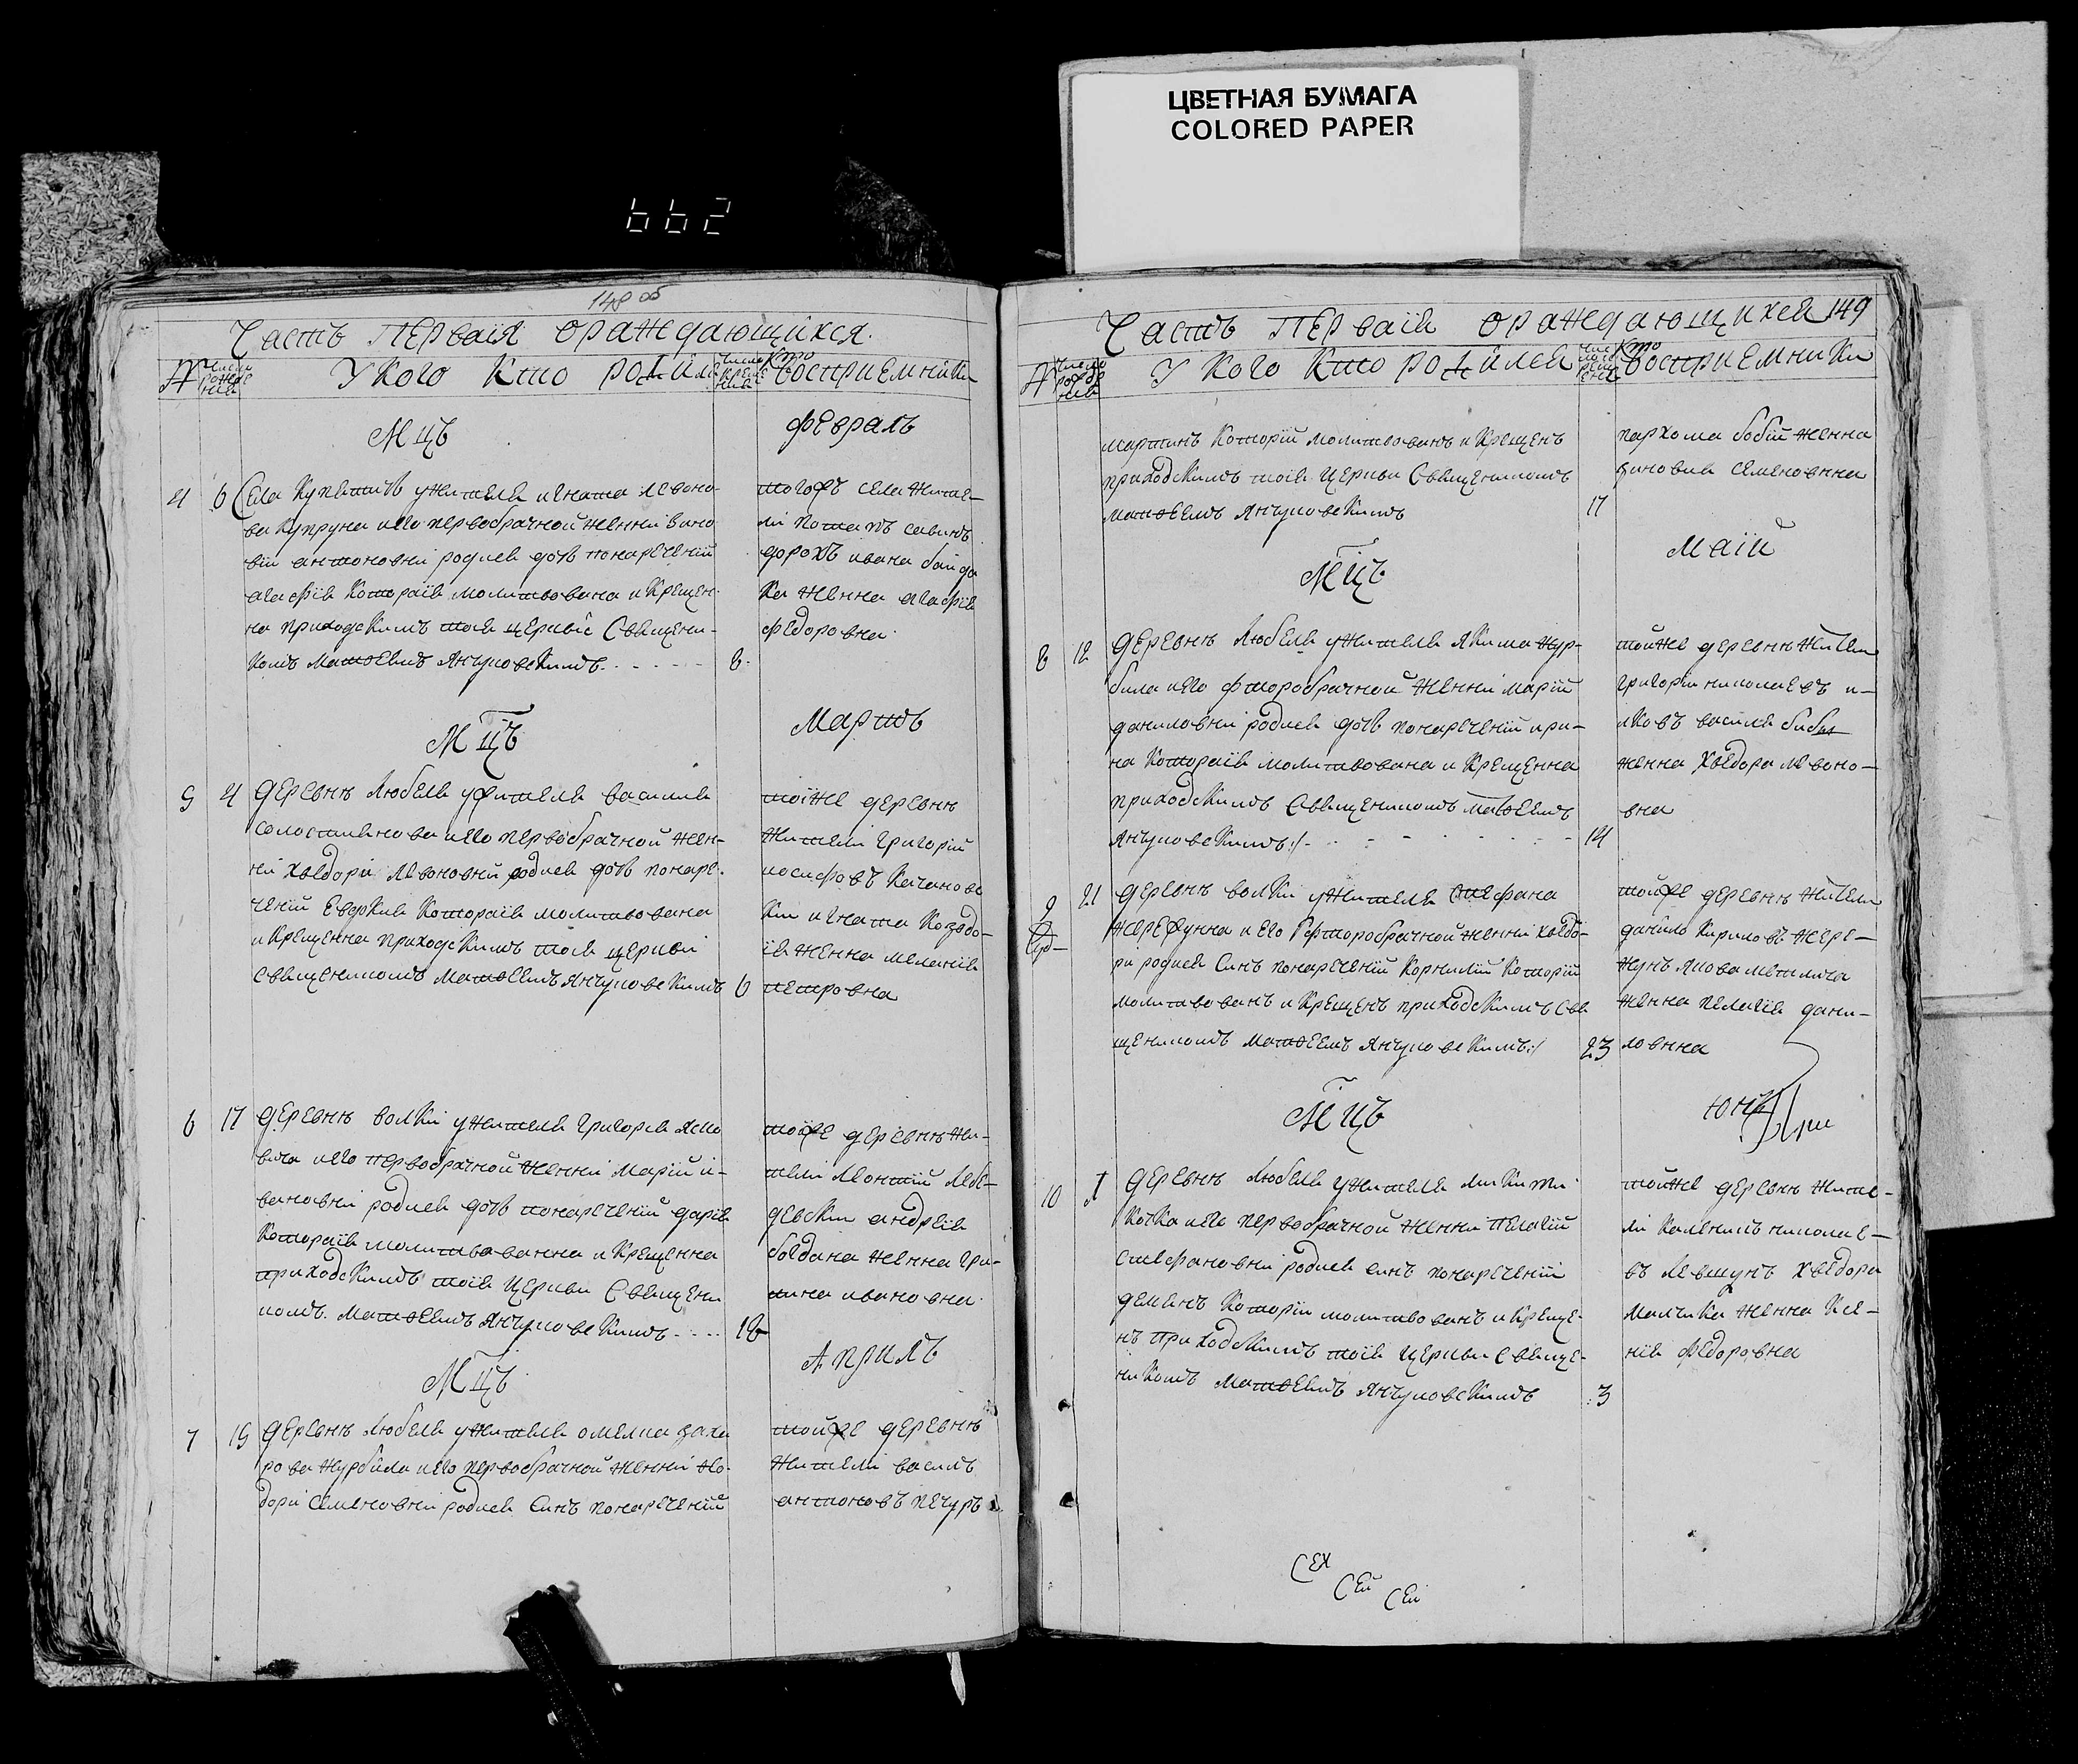 ЦВЕТНАЯ БУМАГА
COLORED PAPER
662
148 об
Часть ПЕРваія ораждающихся.
№ число рожде нія У Кого Кто родилс число креще нія Кто воспрИЕмники
Мць ФЕвраль
4 6 Села Купятичь ужителя игната левоно-
ва Купруна иего первобрачной женні Зино
віи антоновни родися дочь понареченій
агафія Котораія молитвована и Крещен-
на приходскимъ тоія церкви Священи-
комъ Матфеемъ Янчуковскимъ 8.
тогожъ села жите-
лі потапъ савинъ
дорохъ ивана байда
ка женна агафія
федоровна
Мць Мартъ
5 4 деревнѣ Любеля ужителя василия
иего первобрачной жен-
ні хведори левоновни родися дочь понаре-
ченій Евдокия Котораія молитвована
и Крещенна приходскимъ тоія церкви
священикомъ Матфеемъ Янчуковскимъ 6
тоїже деревнѣ
жители григорій
иосифовъ Качановс
кій игната Козодо-
ія женна меланія
петровна
6 17 деревнѣ волкі ужителя григорія Яско
вича иего первобрачной женні Маріи и-
вановні родися дочь понареченій дарія
Котораія молитвованна и Крещенна
приходскимъ тоія Церкви Священи
комъ Матфеемъ Янчуковскимъ 18
тоіже деревнѣ жи-
тели Леонтій Лебе-
девскии андрея
богдана женна гри-
пина ивановна
Мць Априль
7 15 деревнѣ Любеля ужителя омеляна заха
рова журбила иего первобрачной женні хво-
дорі семеновні родися Синъ понареченій
тойже деревнѣ
жителі василь
антоновъ печуръ
Часть ПЕРваія ораждающихся 149
№ число рожде нія У Кого Кто родилея число креще нія Кто воспрИЕмники
мартинъ Которій молитвованъ и Крещенъ
приходскимъ тоія Церкви Священикомъ
Матфеемъ Янчуковскимъ 17
пархома бобій женна
зиновия семеновнна
Мць Маіи
8 12 деревнѣ Любеля ужителя Якима жур-
била иего фторобрачной женні маріи
даниловні родися дочь понареченій ири-
на Котораія молитвована и Крещенна
приходскимъ Священикомъ Матфеемъ
Янчуковскимъ:/- 14
тойже деревнѣ жители
григорій николаевъ и-
лковъ василя бибы
женна хведора левоно-
вна
9 21 деревнѣ волкі ужителя Стефана
жережунна и его фторобрачной женні хведо-
ри родися Синъ понареченій Корнилій Которій
молитвованъ и Крещенъ приходскимъ Свя
щеникомъ Матфеемъ Янчуковскимъ:/ 23
тойже деревнѣ жители
данило Кириловъ жере-
жунъ Якова метлича
женна пелагія дани-
ловнна
Мць юній
10 1 деревнѣ Любеля ужителя Микити
Кочка иего первобрачной женні Пелагіи
стефановни родися синъ понареченій
деминъ Которій молитвованъ и Креще-
нъ приходскимъ тоія Церкви Священ-
никомъ Матфеемъ Янчуковскимъ 3
тойже деревнѣ жите-
лі Каленикъ николае-
въ Левшунъ хведора
малчика женна Ксе-
нія федоровна
Сех
Сей Сей